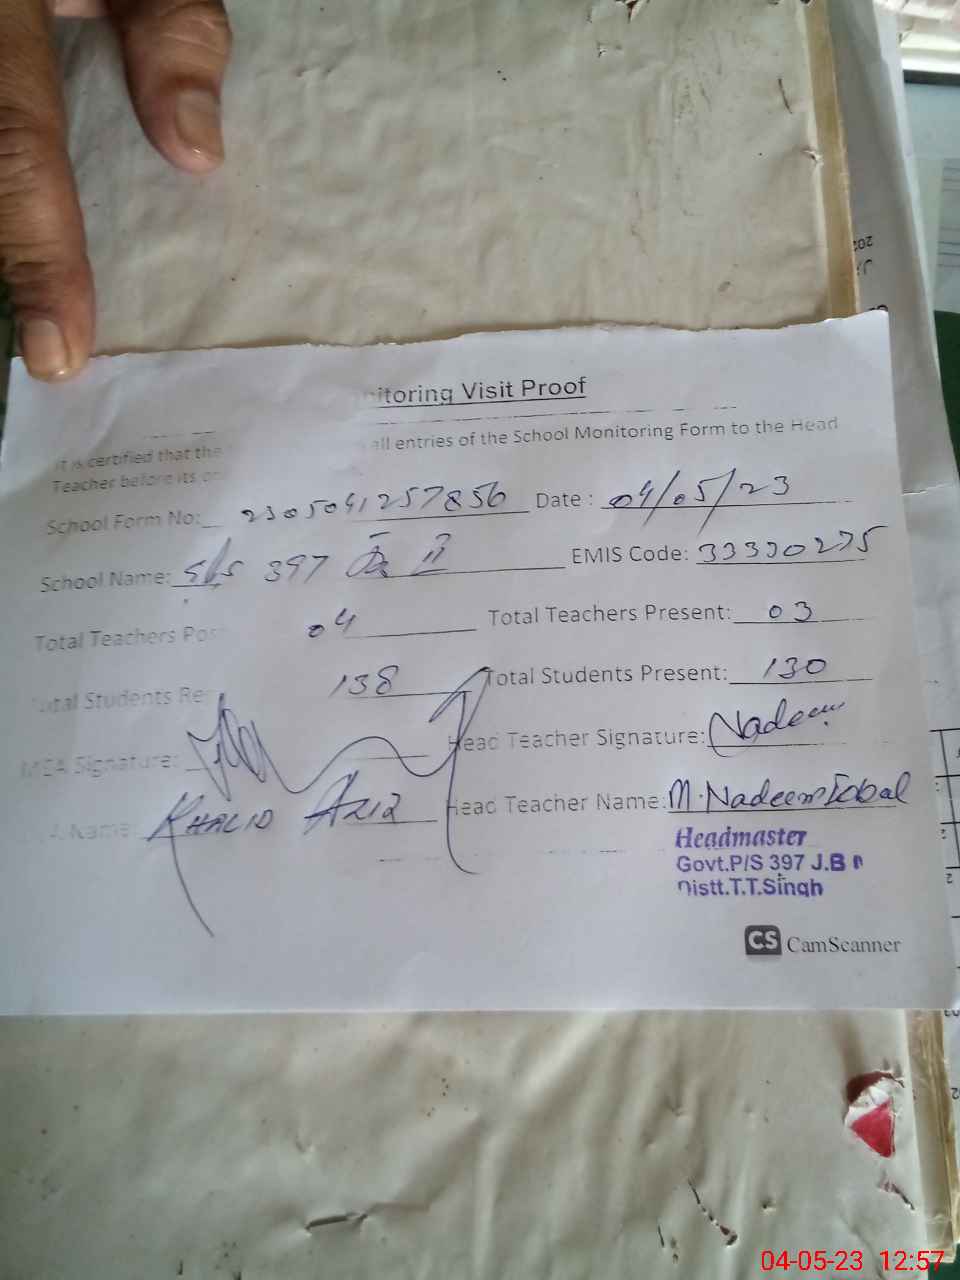 itoring Visit Proof
It is certified that the all entries of the School Monitoring Form to the Head
Teacher before its
School Form No: 2305041257856 Date : 04/05/23
School Name: 397 EMIS Code: 33390275
Total Teachers Pos 04 Total Teachers Present: 03
Total Students Re 138 Total Students Present: 130
MEA Signature: Head Teacher Signature: Nadeem
Name: KHALID AZIZ Head Teacher Name: M. Nadeem Iqbal
Headmaster
Govt.P/S 397 J.B
Distt.T.T.Singh
CS CamScanner
04-05-23 12:57